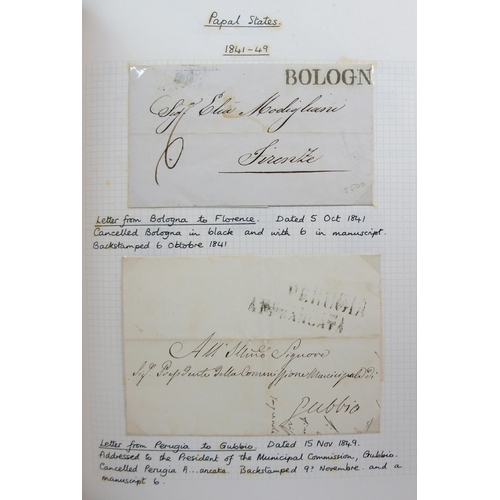 Papal States.
1841-49
BOLOGN
Sigr Elia Modigliani
6
Firenze
Letter from Bologna to Florence. Dated 5 Oct 1841
Cancelled Bologna in black and with 6 in manuscript.
Backstamped 6 Ottobre 1841
PERUGIA
AFFRANCATA
All' Illmo Signore
Sigr Presidente della Commissione Municipale di
Gubbio
Letter from Perugia to Gubbio. Dated 15 Nov 1849.
Addressed to the President of the Municipal Commission, Gubbio.
Cancelled Perugia A...ancata. Backstamped 9? Novembre and a
manuscript 6.